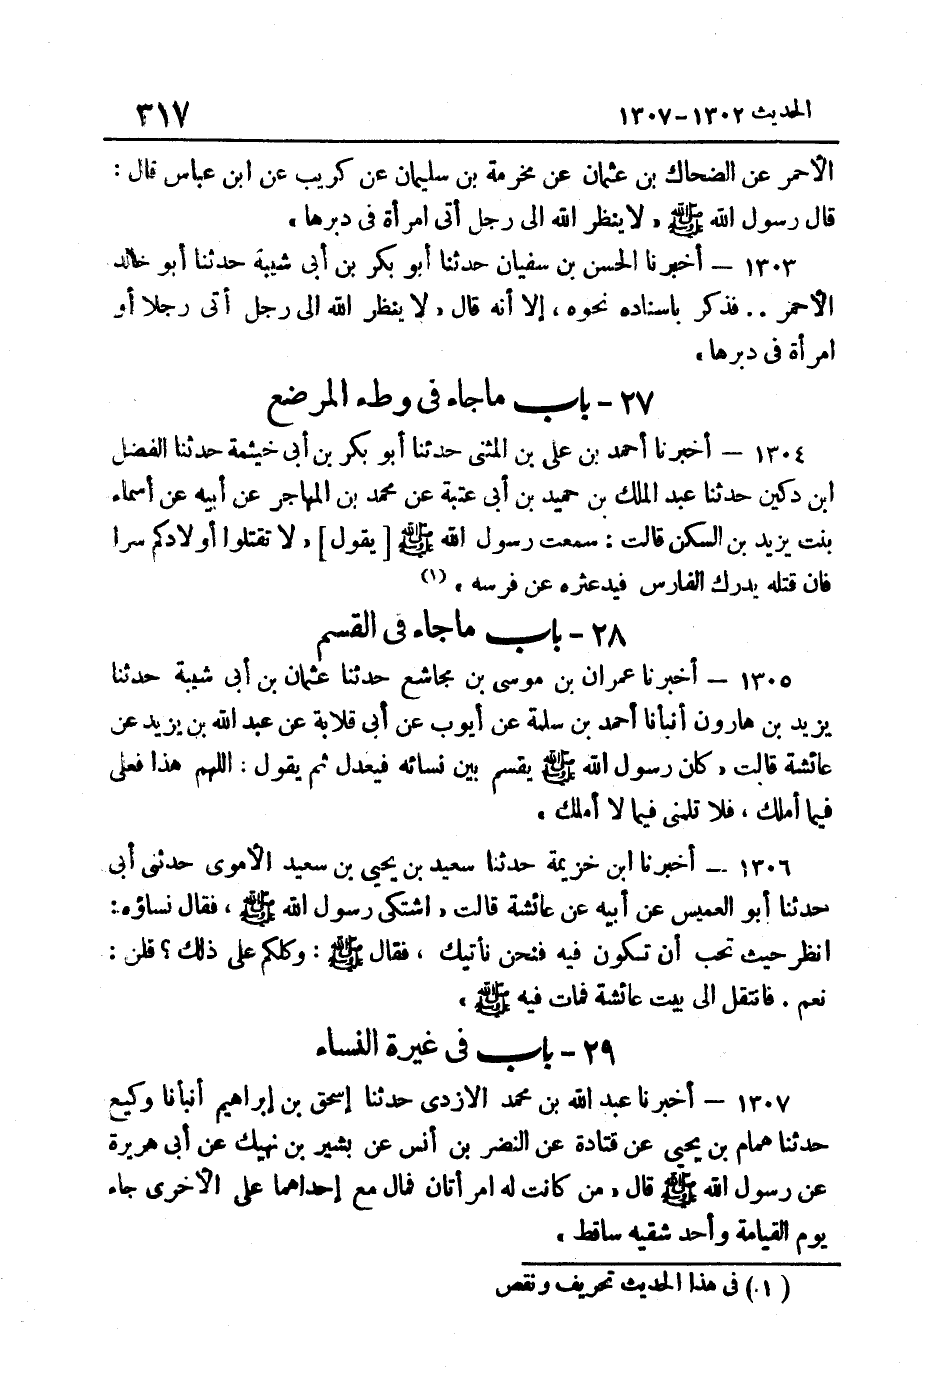 الحديث ١٣٠٢-١٣٠٧ ٣١٧
الأحمر عن الضحاك بن عثمان عن مخرمة بن سليمان عن كريب عن ابن عباس قال :
قال رسول الله ﷺ « لا ينظر الله الى رجل أتى امرأة فى دبرها »
١٣٠٣ – أخبرنا الحسن بن سفيان حدثنا أبو بكر بن أبى شيبة حدثنا أبو خالد
الأحمر .. فذكر باسناده نحوه ، إلا أنه قال « لا ينظر الله الى رجل أتى رجلا أو
امرأة فى دبرها »
٢٧ - باب ماجاء فى وطء المرضع
١٣٠٤ – أخبرنا أحمد بن على بن المثنى حدثنا أبو بكر بن أبى خيثمة حدثنا الفضل
ابن دكين حدثنا عبد الملك بن حميد بن أبى عتبة عن محمد بن المهاجر عن أبيه عن أسماء
بنت يزيد بن السكن قالت : سمعت رسول الله ﷺ [ يقول ] « لا تقتلوا أولادكم سرا
فان قتله يدرك الفارس فيدعثره عن فرسه » (١)
٢٨ - باب ماجاء فى القسم
١٣٠٥ – أخبرنا عمران بن موسى بن مجاشع حدثنا عثمان بن أبى شيبة حدثنا
يزيد بن هارون أنبأنا أحمد بن سلمة عن أيوب عن أبى قلابة عن عبد الله بن يزيد عن
عائشة قالت « كان رسول الله ﷺ يقسم بين نسائه فيعدل ثم يقول : اللهم هذا فعلى
فيما أملك ، فلا تلمنى فيما لا أملك »
١٣٠٦ – أخبرنا ابن خزيمة حدثنا سعيد بن يحيى بن سعيد الأموى حدثنى أبى
حدثنا أبو العميس عن أبيه عن عائشة قالت « اشتكى رسول الله ﷺ ، فقال نساؤه :
انظر حيث تحب أن تكون فيه فنحن نأتيك ، فقال ﷺ : وكلكم على ذلك ؟ قلن :
نعم . فانتقل الى بيت عائشة فمات فيه ﷺ »
٢٩ - باب فى غيرة النساء
١٣٠٧ – أخبرنا عبد الله بن محمد الازدى حدثنا إسحق بن إبراهيم أنبأنا وكيع
حدثنا همام بن يحيى عن قتادة عن النضر بن أنس عن بشير بن نهيك عن أبى هريرة
عن رسول الله ﷺ قال « من كانت له امرأتان فمال مع إحداهما على الأخرى جاء
يوم القيامة وأحد شقيه ساقط »
( ١ ) فى هذا الحديث تحريف ونقص